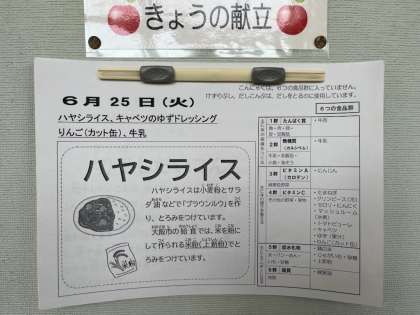 きょうの献立
こんにゃくは、６つの食品群に入っていません。
けずりぶし、だしこんぶは、だしをとるのに使用しています。
６月 ２５日（火）
ハヤシライス、キャベツのゆずドレッシング
りんご（カット缶）、牛乳
ハヤシライス
ハヤシライスは小麦粉とサラ
ダ油などで「ブラウンルウ」を作
り、とろみをつけています。
大阪市の給食では、米を粉に
して作られる米粉（上新粉）でと
ろみをつけています。
６つの食品群
１群 たんぱく質
・牛肉
２群 無機質
（カルシウム）
・牛乳
３群 ビタミンA
（カロテン）
・にんじん
緑黄色野菜
４群 ビタミンC
・たまねぎ
・グリンピース（冷）
・セロリ・にんにく
・マッシュルーム
（水煮）
・トマトピューレ
・キャベツ
・ゆず（果汁）
・りんご（カット缶）
５群 炭水化物
６群 脂質